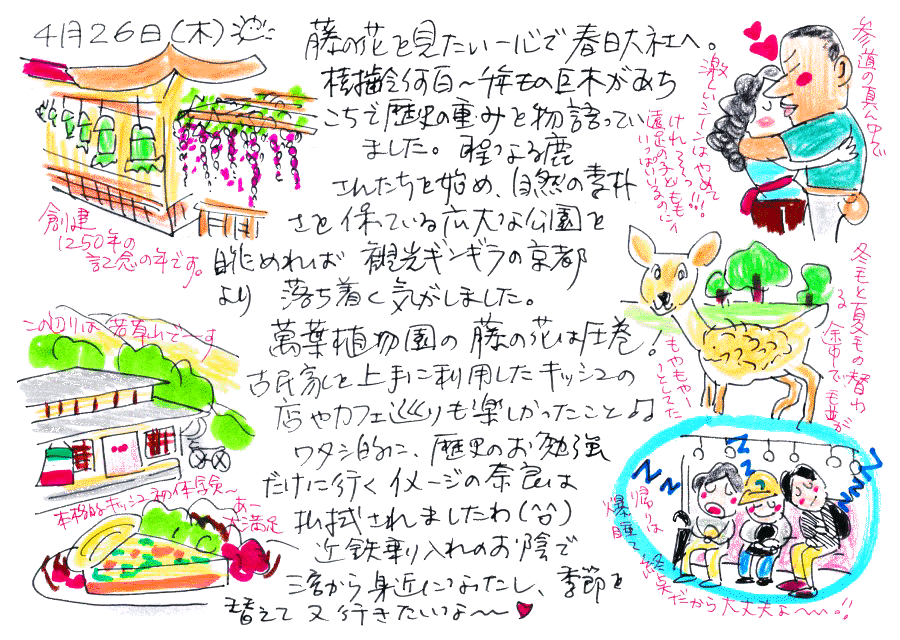 4月26日(木)
藤の花を見たい一心で春日大社へ。
樹齢何百〜千年もの巨木があち
こちで歴史の重みを物語ってい
ました。寝そべる鹿
さんたちを始め、自然の素朴
さを保っている広大な公園を
眺めれば 観光ギンギラの京都
より 落ち着く気がしました。
萬葉植物園の藤の花は圧巻!
古民家を上手に利用したキッシュの
店やカフェ巡りも楽しかったこと♫
ワタシ的に、歴史のお勉強
だけに行くイメージの奈良は
払拭されましたわ(^o^)
近鉄乗り入れのお陰で
三宮から身近になったし、季節を
替えて又行きたいな〜♥
創建
1250年の
記念の年です。
参道の真ん中で
激しいシーンはやめて
けれーっっ!!!
遠足の子どもも
いっぱいいるのにィ
冬毛と夏毛の替わ
る途中で毛並が
もやもやー
としてた
この辺りは若草山でーす
本格的キッシュ初体験〜
あー
大満足
帰りは
爆睡で
終点だから大丈夫よ〜!!
ZZZ